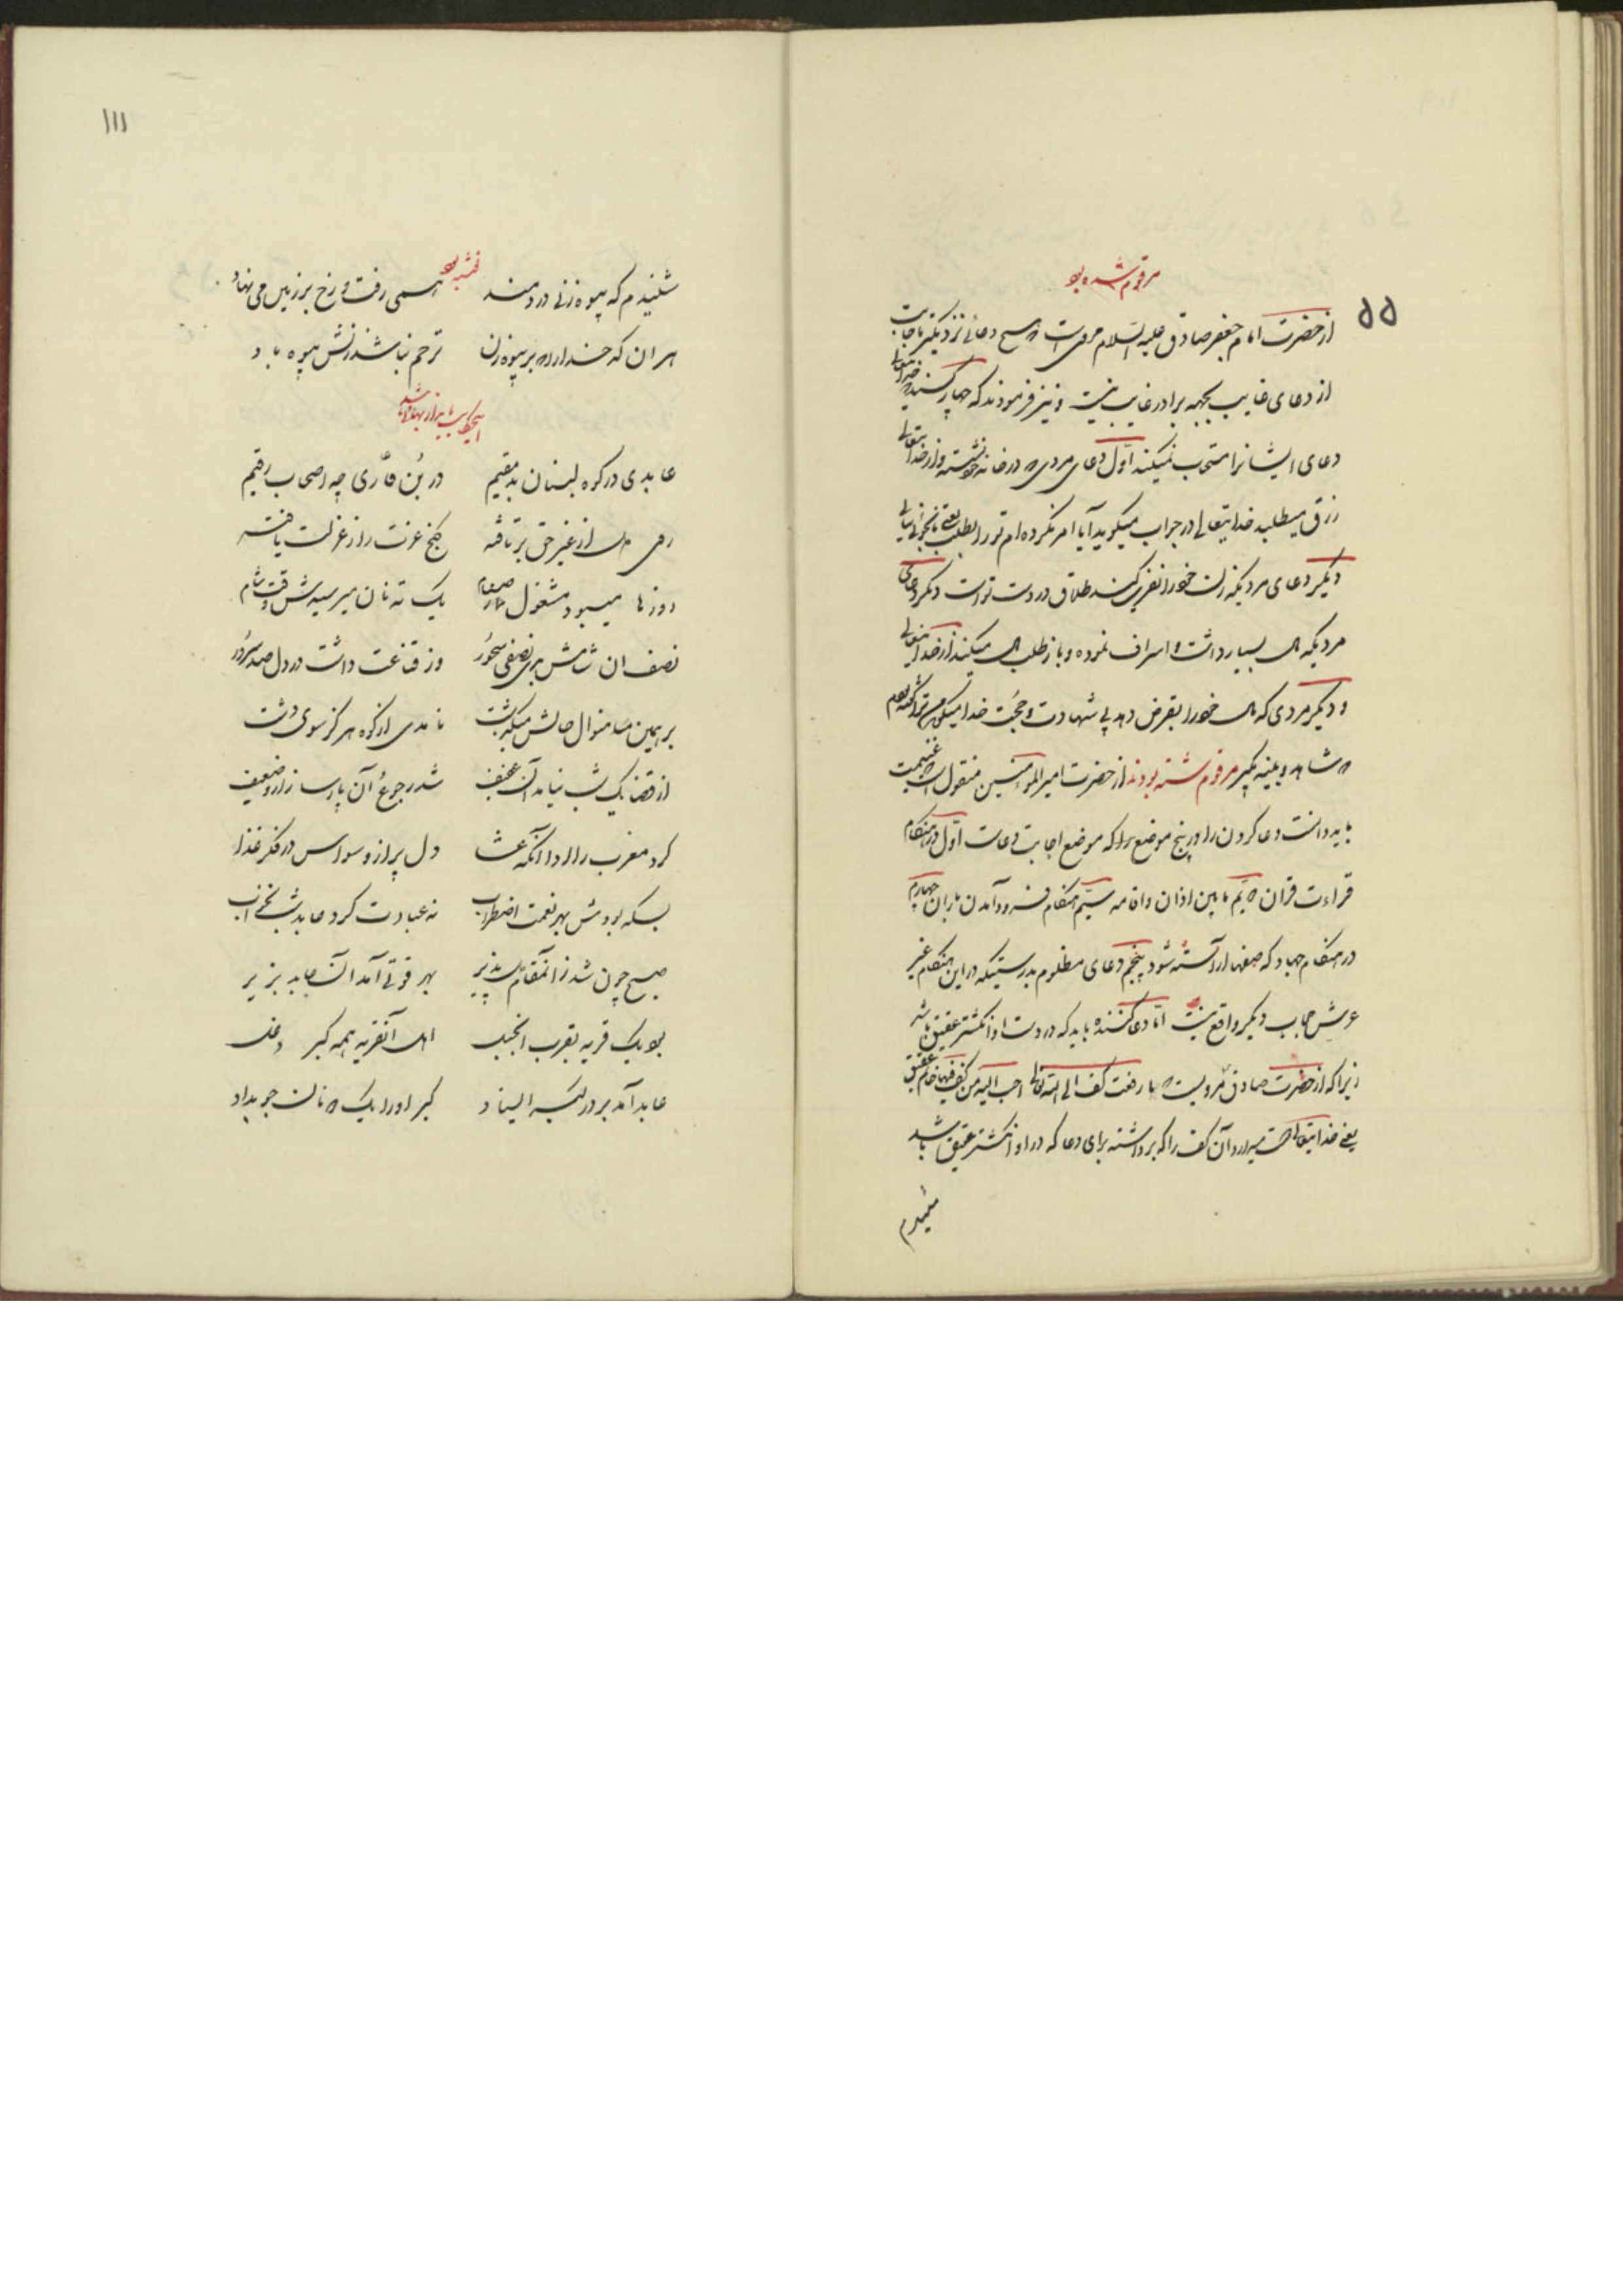 مرقوم شده بود
۵۵
از حضرت امام جعفر صادق علیه السلام مرویست که هیچ دعائی نزدیکتر باجابت
از دعای غایب بجهه برادر غایب نیست و نیز فرمودند که چهار کسند که خدایتعالی
دعای ایشانرا مستجاب نمیکند اول دعای مردی که در خانه خود نشسته و از خدایتعالی
رزق میطلبد خدایتعالی در جواب میگوید آیا امر نکرده‌ام تو را بطلب یعنی
دیگر دعای مردیکه زن خود را نفرین کند طلاق در دست تو است دیگر دعای
مردیکه مال بسیار داشت و اسراف نموده و باز طلب مال میکند از خدایتعالی
و دیگر مردی که مال خود را بقرض دهد بی شهادت و حجت خدا میگوید من ترا گفته بودم
که شاهد و بینه بگیر مرقوم شده بودند از حضرت امیر المؤمنین منقول است که غنیمت
باید دانست دعا کردن را در پنج موضع را که موضع اجابت دعاست اول در هنگام
قراءت قران دویم مابین اذان واقامه سیم هنگام فرود آمدن باران چهارم
در هنگام جهاد که صفها آراسته شود پنجم دعای مظلوم بدرستیکه در این هنگام غیر
عرش حجاب دیگر واقع نیست اما دعا کننده باید که در دست او انگشتر عقیق باشد
زیرا که از حضرت صادق مرویست که ما رفعت کف الی الله تعالی احب الیه من کف فیها خاتم عقیق
یعنی خدایتعالی دوست میدارد آن کف را که برداشته برای دعا که در او انگشتر عقیق باشد
شنیدم
۱۱۱
شنیدم که بیوه زنی دردمند همی رفت و رخ بر زمین می نهاد
نوشته بود
هر ان که خدا را که بر بیوه زن ترحم نباشد زنش بیوه باد
عابدی در کوه لبنان بد مقیم در بن غاری چه اصحاب رقیم
روی دل از غیر حق برتافته گنج عزت را ز عزلت یافته
روزها میبود مشغول صیام یک ته نان میرسیدش وقت شام
نصف ان شامش بدی نصفی سحور وز قناعت داشت در دل صد سرور
بر همین منوال حالش میگذشت نامدی از کوه هرگز سوی دشت
از قضا یک شب نیامد آن رغیف شد ز جوع آن پارسا زار و ضعیف
کرد مغرب را ادا آنگه عشا دل پر از وسواس در فکر غذا
بسکه بودش بهر نعمت اضطراب نه عبادت کرد عابد شب نخواب
صبح چون شد زانمقام دلپذیر بهر قوتی آمد آن عابد بزیر
بود یک قریه بقرب آنجبل اهل آنقریه همه گبر و دغل
عابد آمد بر در گبر ایستاد گبر او را یک دو نان جو بداد